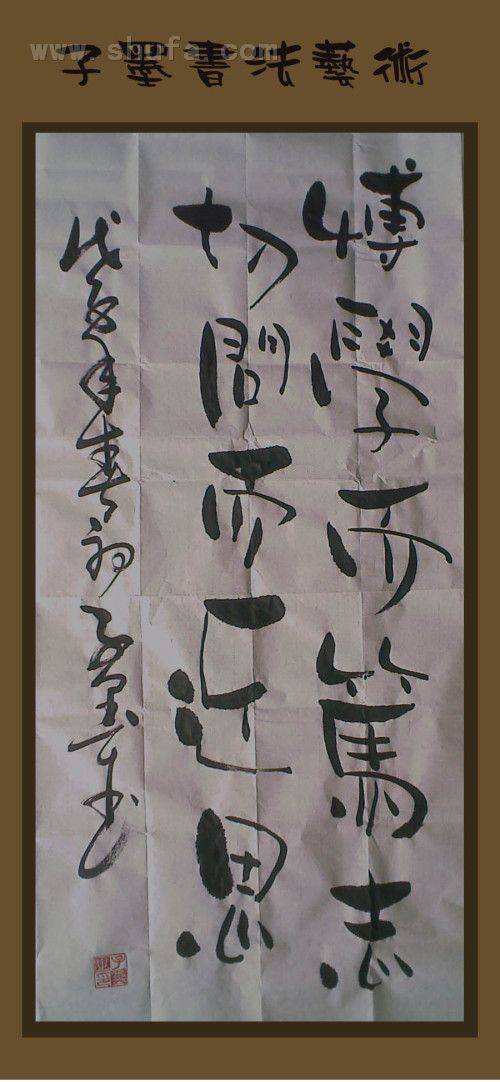 www.shufa.com
子墨書法藝術
博學而篤志
切問而近思
年春初子墨